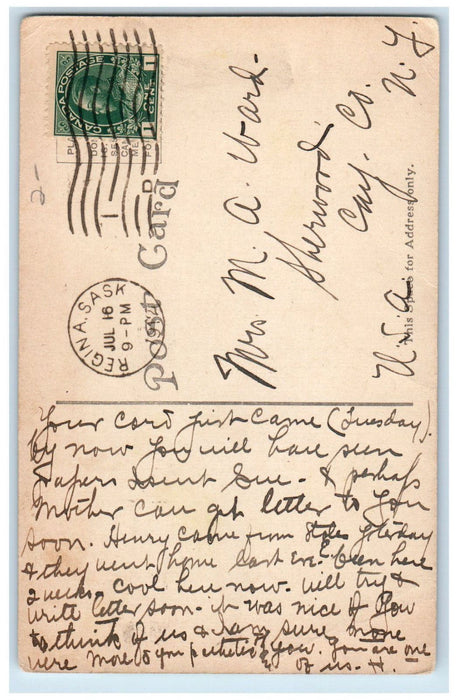 CANADA POSTAGE
1 ONE CENT 1
REGINA. SASK
JUL 16
9-PM
Post Card
Mrs. M. A. Ward.
Sherwood
Cay. Co.
N.Y.
U.S.A.
This Space for Address only.
2-
Your card just came (Tuesday).
by now you will have seen
papers I sent Sue. & perhaps
Mother can get letter to you
soon. Henry came from yesterday
& they went home last Eve. been here
2 weeks. cool here now. will try &
write letter soon. it was nice of you
to think of us & I am sure none
were more to you of you. You are one
of us. H.